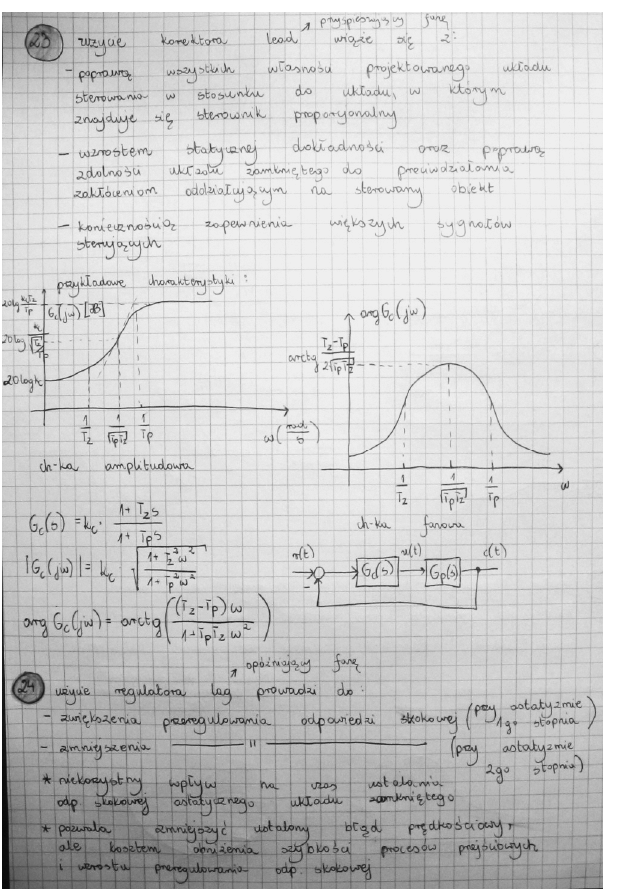 przyśpieszający fazę
23 użycie korektora lead wiąże się z:
- poprawą wszystkich własności projektowanego układu
sterowania w stosunku do układu, w którym
znajduje się sterownik proporcjonalny
- wzrostem statycznej dokładności oraz poprawą
zdolności układu zamkniętego do przeciwdziałania
zakłóceniom oddziałującym na sterowany obiekt
- koniecznością zapewnienia większych sygnałów
sterujących
przykładowe charakterystyki:
20log kcTz/Tp
Gc(jω) [dB]
20log kc√(Tz/Tp)
20logkc
1/Tz 1/√(TpTz) 1/Tp
ω (rad/s)
ch-ka amplitudowa
arg Gc(jω)
arctg (Tz-Tp)/(2√(TpTz))
1/Tz 1/√(TpTz) 1/Tp
ω
ch-ka fazowa
Gc(s) = kc · (1+Tzs)/(1+Tps)
|Gc(jω)| = kc √((1+Tz²ω²)/(1+Tp²ω²))
arg Gc(jω) = arctg((Tz-Tp)ω/(1+TpTzω²))
r(t) - Gc(s) u(t) Gp(s) c(t)
opóźniający fazę
24 użycie regulatora lag prowadzi do:
- zwiększenia przeregulowania odpowiedzi skokowej (przy astatyzmie 1go stopnia)
- zmniejszenia —— || —— (przy astatyzmie 2go stopnia)
* niekorzystny wpływ na czas ustalania
odp. skokowej astatycznego układu zamkniętego
* pozwala zmniejszyć ustalony błąd prędkościowy,
ale kosztem obniżenia szybkości procesów przejściowych
i wzrostu przeregulowania odp. skokowej